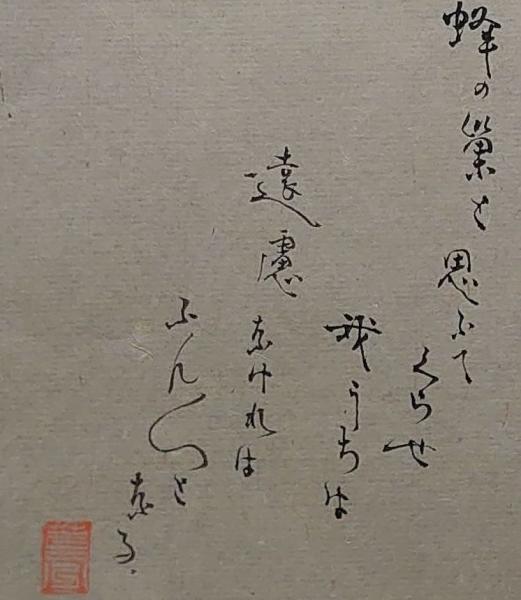 蜂の巣と思ふて
くらせ
我うちは
遠慮なけれは
ふん〱と
なる